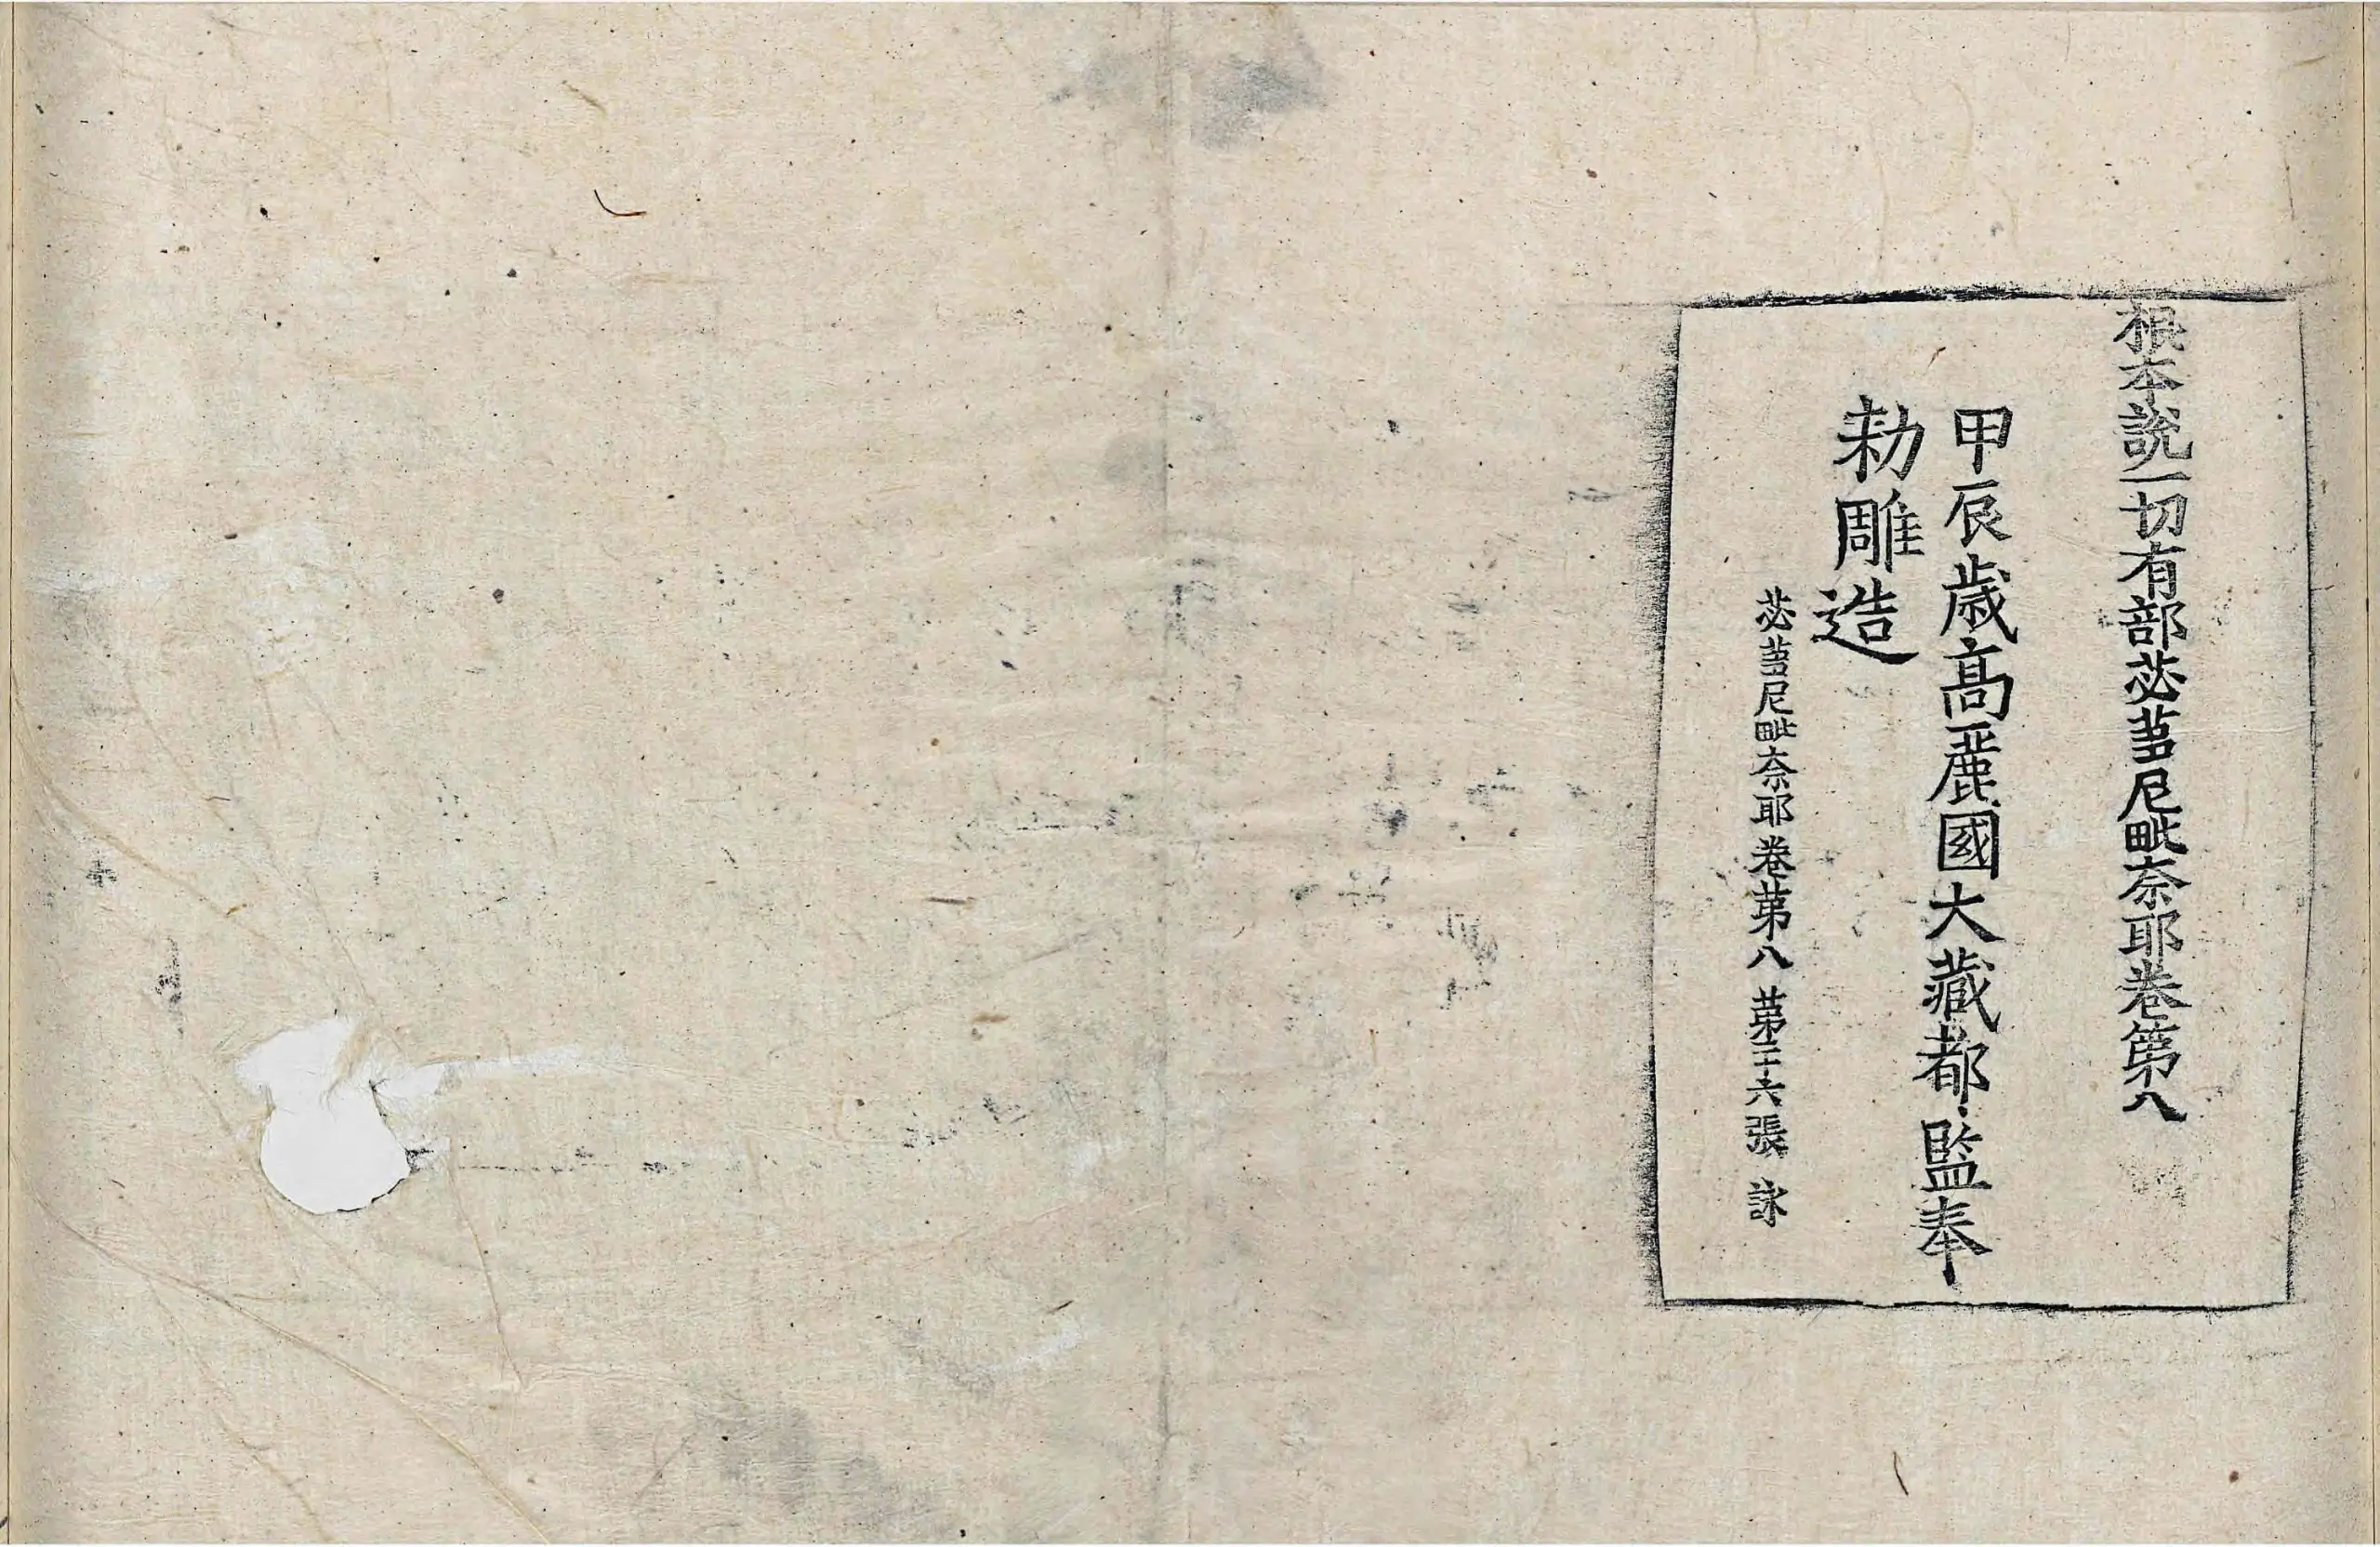 根本說一切有部苾蒭尼毗奈耶卷第八
甲辰歳高麗國大藏都監奉
勅雕造
苾蒭尼毗奈耶卷苐八 苐二十六張 詠